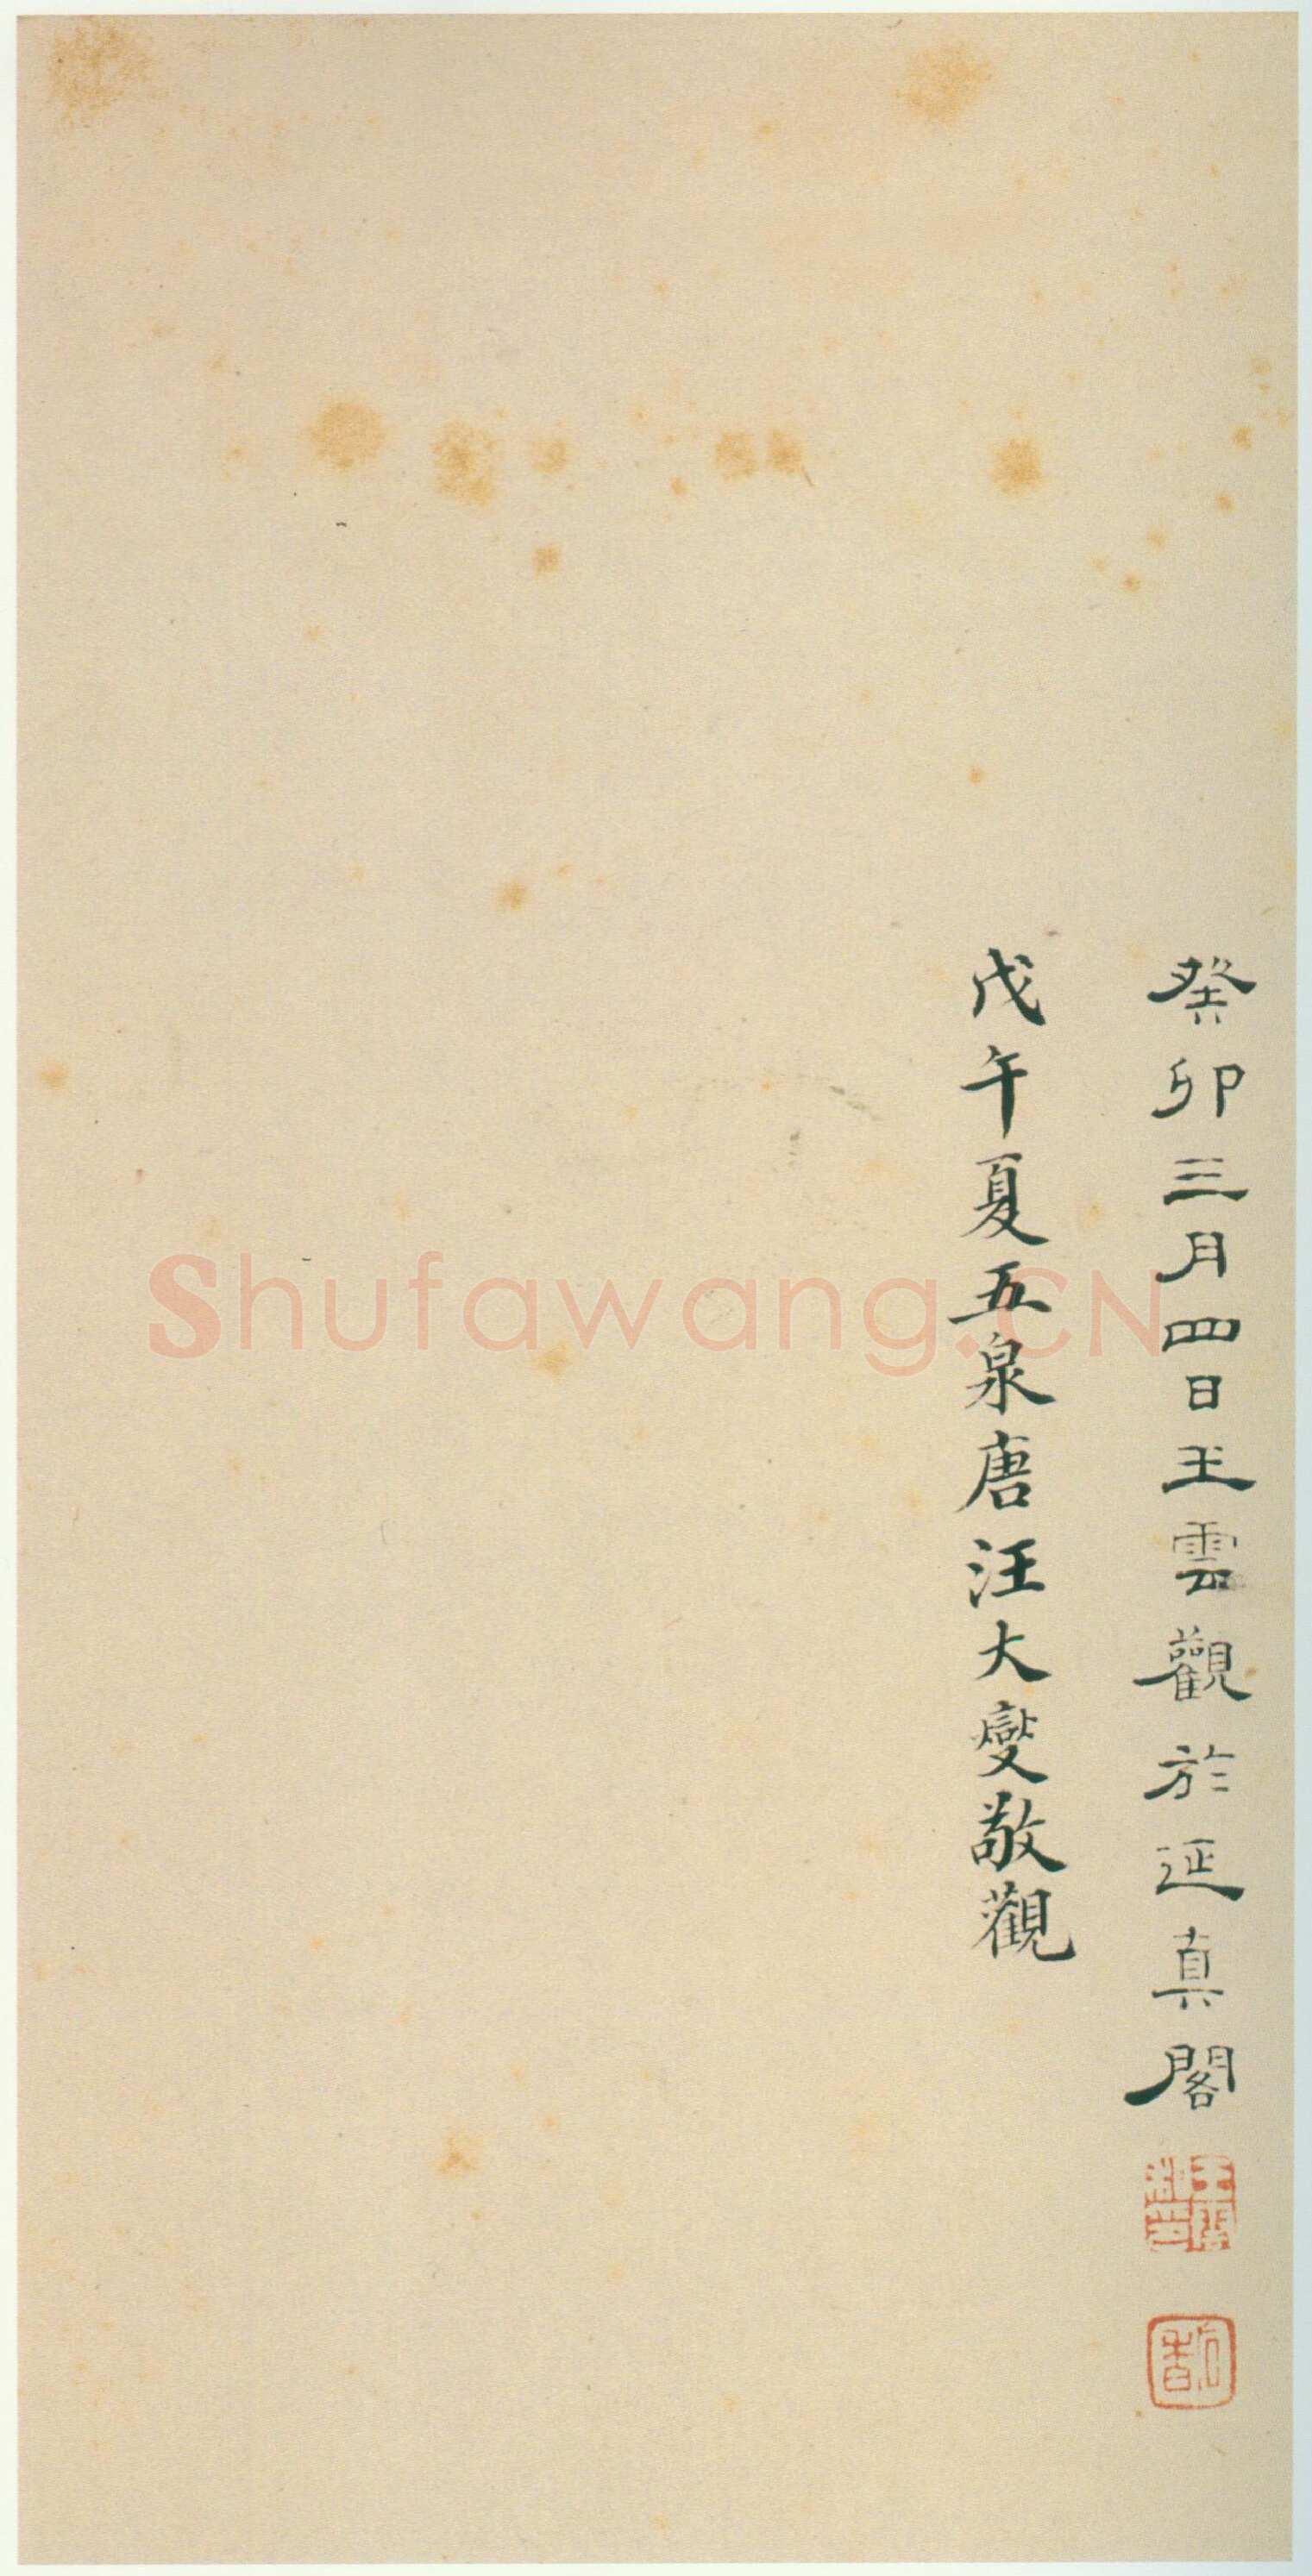 癸卯三月四日王雲觀於延真閣
戊午夏五泉唐汪大燮敬觀
Shufawang.CN